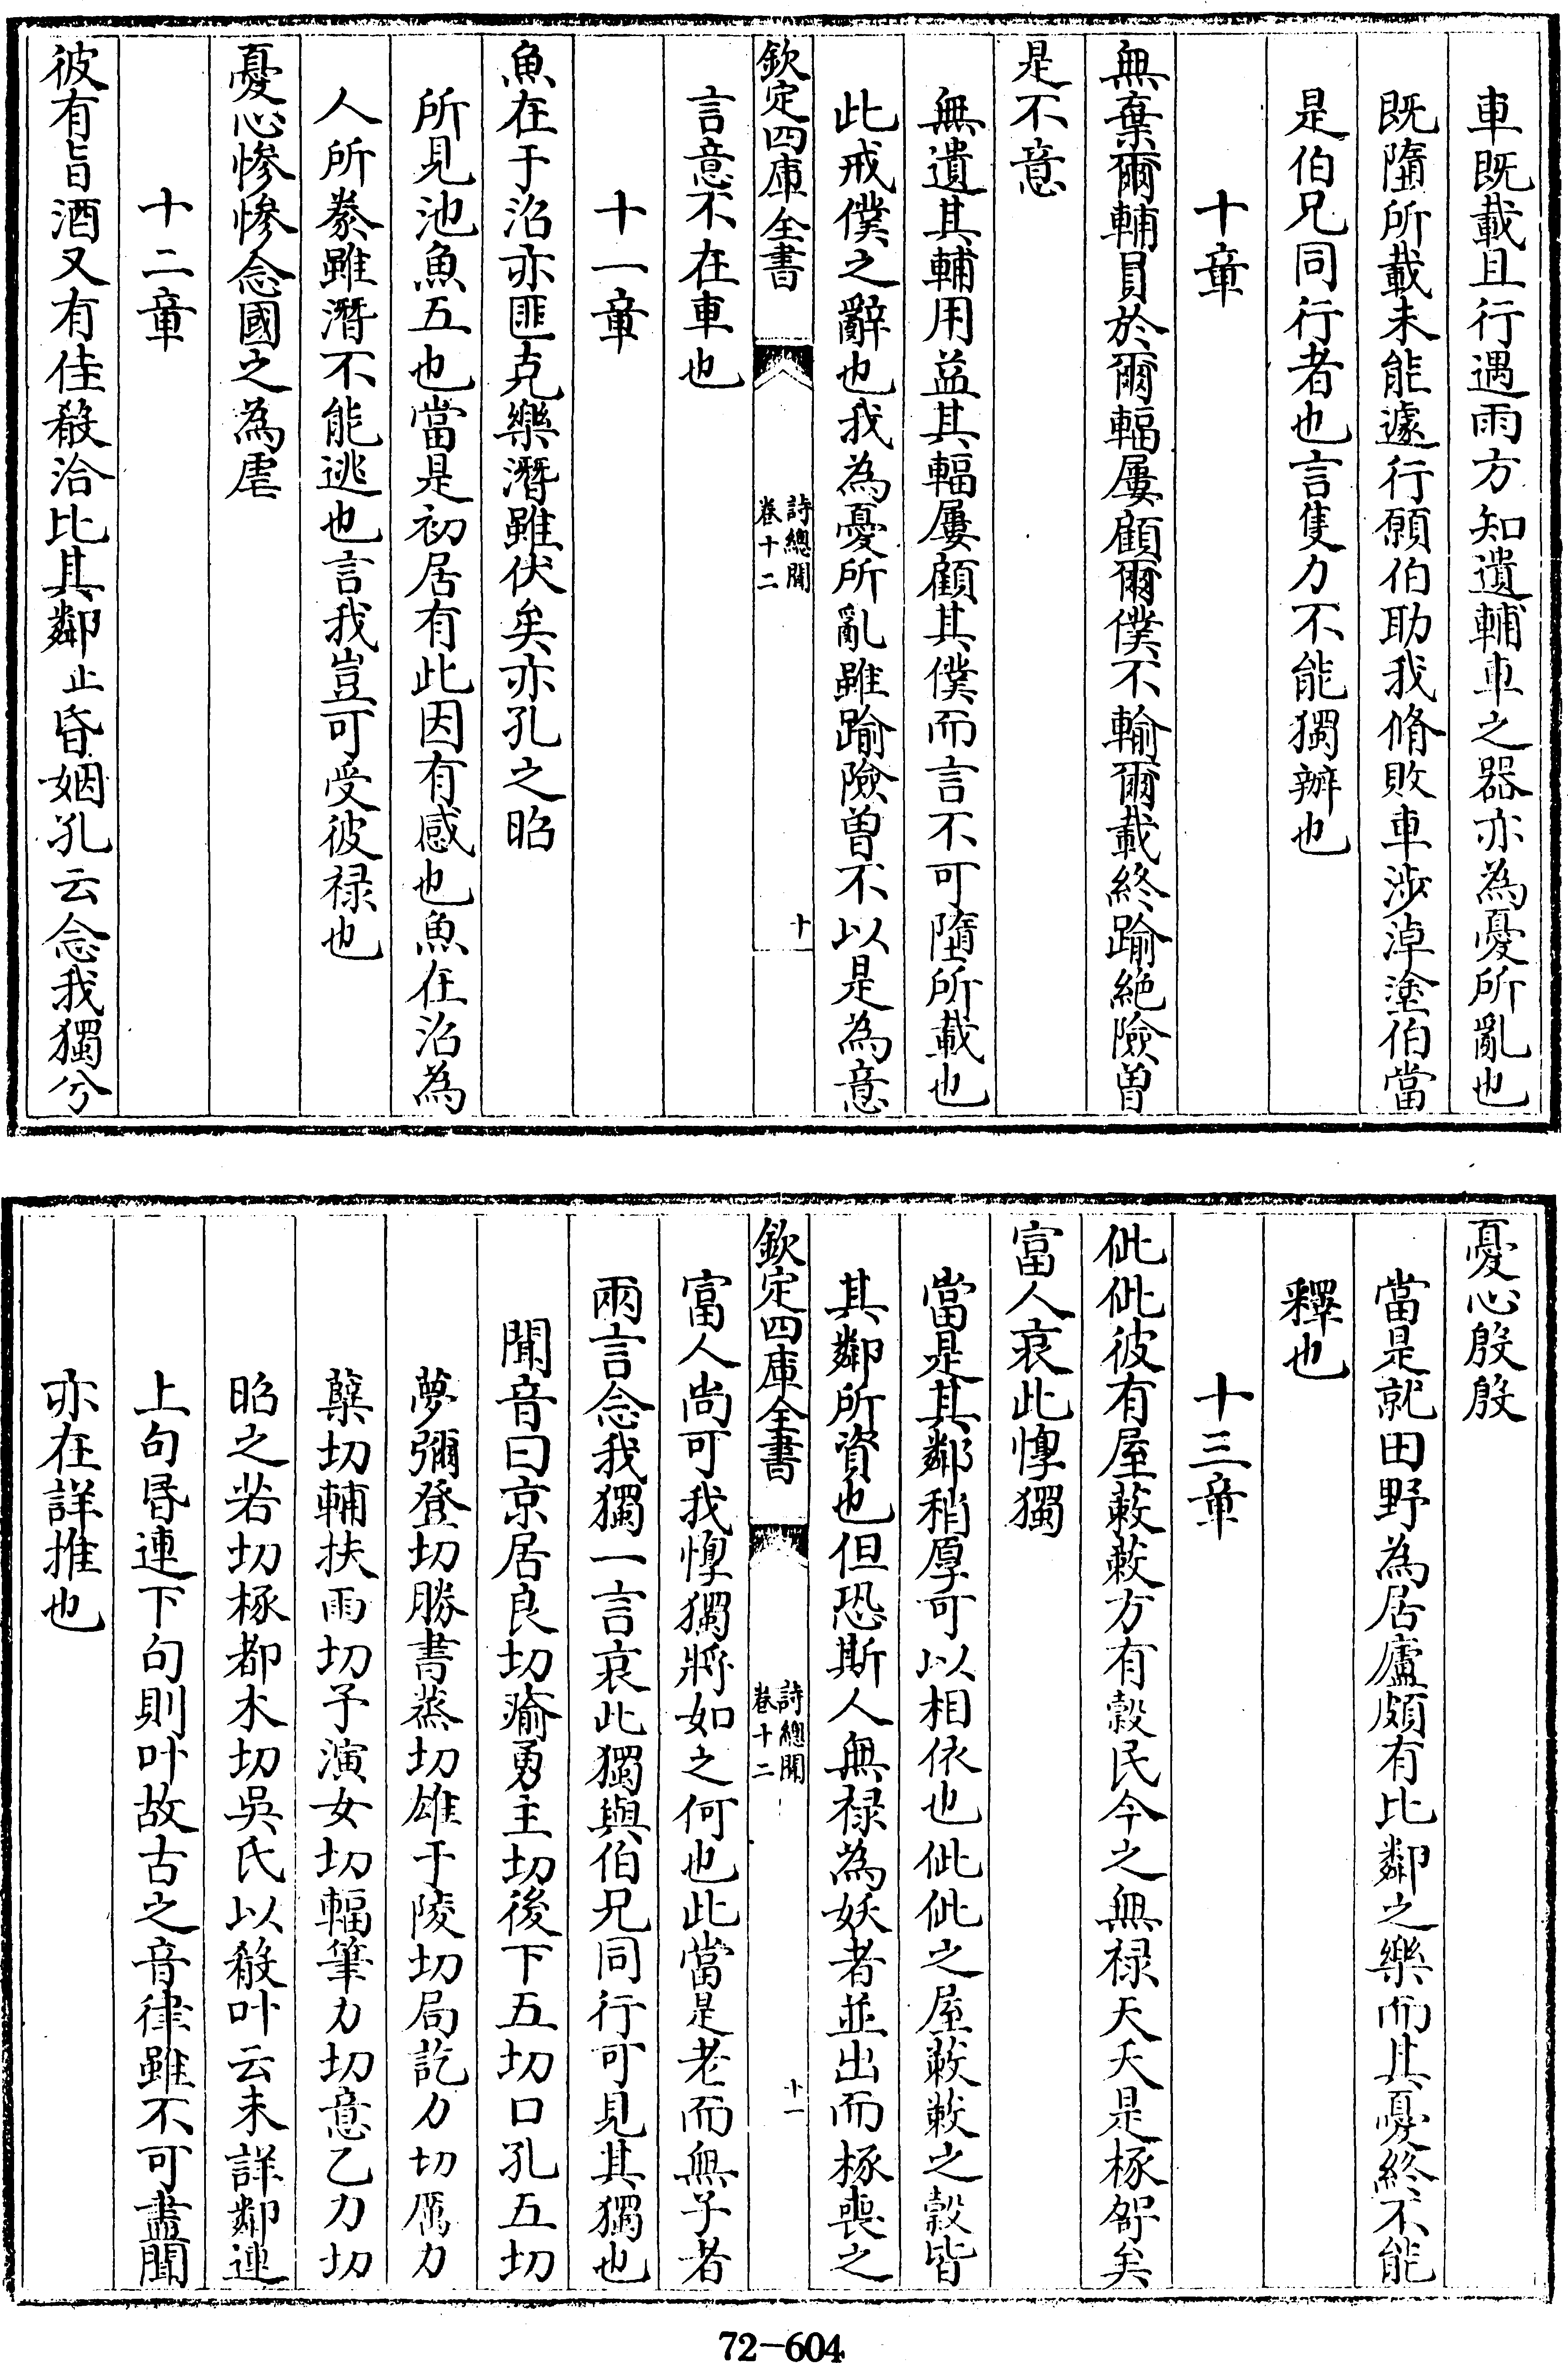 車既載且行遇雨方知遺輔車之器亦為憂所亂也
既隋所載未能遽行願伯助我脩敗車涉淖塗伯當
是伯兄同行者也言隻力不能獨辦也
十章
無棄爾輔員於爾輻屢顧爾僕不輸爾載終踰絶險曽
是不意
無遺其輔用益其輻屢顧其僕而言不可隋所載也
此戒僕之辭也我為憂所亂雖踰險曽不以是為意
欽定四庫全書
詩總聞
卷十二
十
言意不在車也
十一章
魚在于沼亦匪克樂潛雖伏矣亦孔之昭
所見池魚五也當是初居有此因有感也魚在沼為
人所豢雖潛不能逃也言我豈可受彼禄也
憂心慘慘念國之為虐
十二章
彼有旨酒又有佳殽洽比其鄰止昏姻孔云念我獨兮
憂心殷殷
當是就田野為居廬頗有比鄰之樂而其憂終不能
釋也
十三章
佌佌彼有屋蔌蔌方有穀民今之無禄天夭是椓哿矣
富人哀此惸獨
當是其鄰稍厚可以相依也佌佌之屋蔌蔌之穀皆
其鄰所資也但恐斯人無禄為妖者並出而椓喪之
欽定四庫全書
詩總聞
卷十二
十一
富人尚可我惸獨將如之何也此當是老而無子者
兩言念我獨一言哀此獨與伯兄同行可見其獨也
聞音曰京居良切瘉勇主切後下五切口孔五切
夢彌登切勝書蒸切雄于陵切局訖力切厲力
蘖切輔扶雨切予演女切輻筆力切意乙力切
昭之若切椓都木切吳氏以殽叶云未詳鄰連
上句昬連下句則叶故古之音律雖不可盡聞
亦在詳推也
72-604